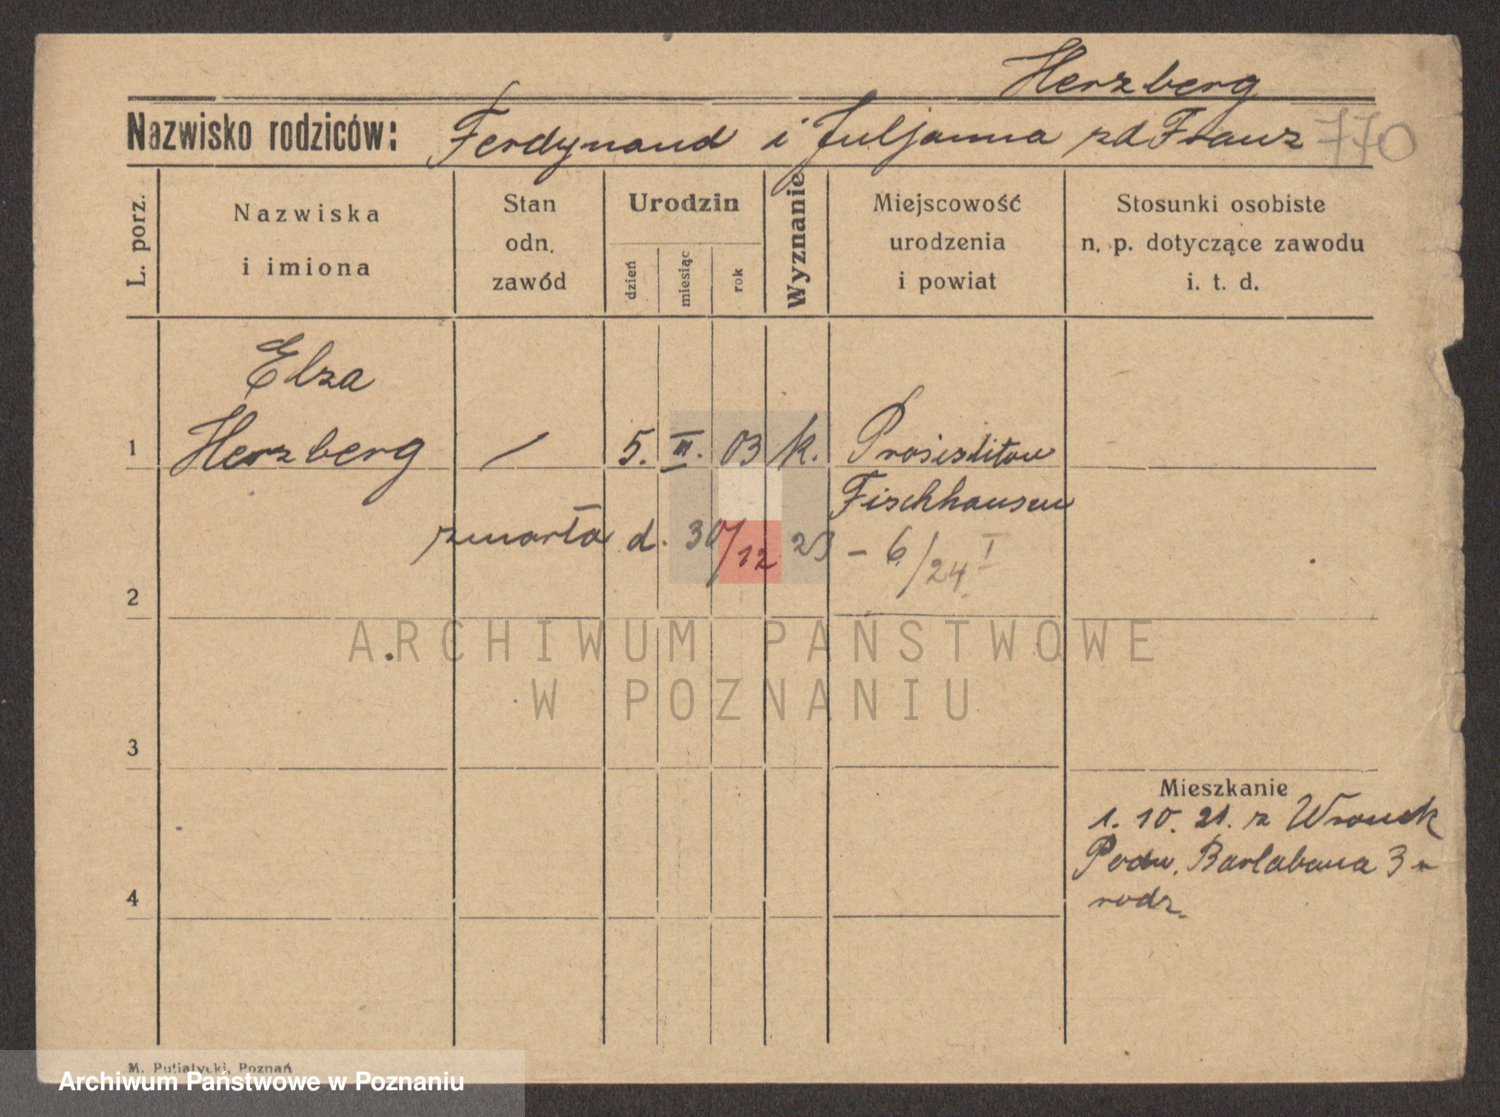 Herzberg
Nazwisko rodziców: Ferdynand i Juljanna zd Franz 770
L. porz.
Nazwiska
i imiona
Stan
odn.
zawód
Urodzin
dzień
miesiąc
rok
Wyznanie
Miejscowość
urodzenia
i powiat
Stosunki osobiste
n. p. dotyczące zawodu
i. t. d.
Elza
1 Herzberg / 5. III. 03 k.
Fischhausen
zmarła d. 30/12 23 – 6/24 I
2
ARCHIWUM PAŃSTWOWE
W POZNANIU
3
Mieszkanie
1. 10. 21. z Wronek
Podw. 3
4
rodz.
M. Putiatycki, Poznań
Archiwum Państwowe w Poznaniu